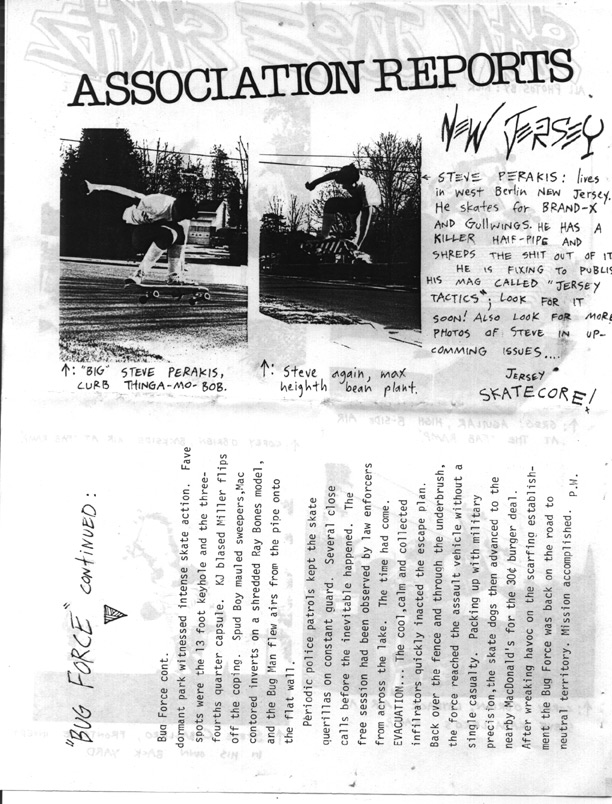 ASSOCIATION REPORTS
NEW JERSEY
← STEVE PERAKIS: lives
in west Berlin New Jersey.
He skates for BRAND-X
AND GullWINGS. HE HAS A
KILLER HALF-PIPE AND
SHREDS THE SHIT OUT OF IT
HE IS FIXING TO PUBLIS
HIS MAG CALLED "JERSEY
TACTICS"; LOOK FOR IT
SOON! ALSO LOOK FOR MORE
PHOTOS OF STEVE IN UP-
COMMING ISSUES....
JERSEY
SKATECORE!
↑: "BIG" STEVE PERAKIS,
CURB THINGA-MO-BOB.
↑: Steve again, max
heighth bean plant.
"BUG FORCE" CONTINUED:
Bug Force cont.
dormant park witnessed intense skate action. Fave
spots were the 13 foot keyhole and the three-
fourths quarter capsule. KJ blased Miller flips
off the coping. Spud Boy mauled sweepers,Mac
contored inverts on a shredded Ray Bones model,
and the Bug Man flew airs from the pipe onto
the flat wall.
Periodic police patrols kept the skate
querillas on constant guard. Several close
calls before the inevitable happened. The
free session had been observed by law enforcers
from across the lake. The time had come.
EVACUATION... The cool,calm and collected
infilrators quickly inacted the escape plan.
Back over the fence and through the underbrush,
the force reached the assault vehicle without a
single casualty. Packing up with military
precision,the skate dogs then advanced to the
nearby MacDonald's for the 30¢ burger deal.
After wreaking havoc on the scarfing establish-
ment the Bug Force was back on the road to
neutral territory. Mission accomplished. P.W.